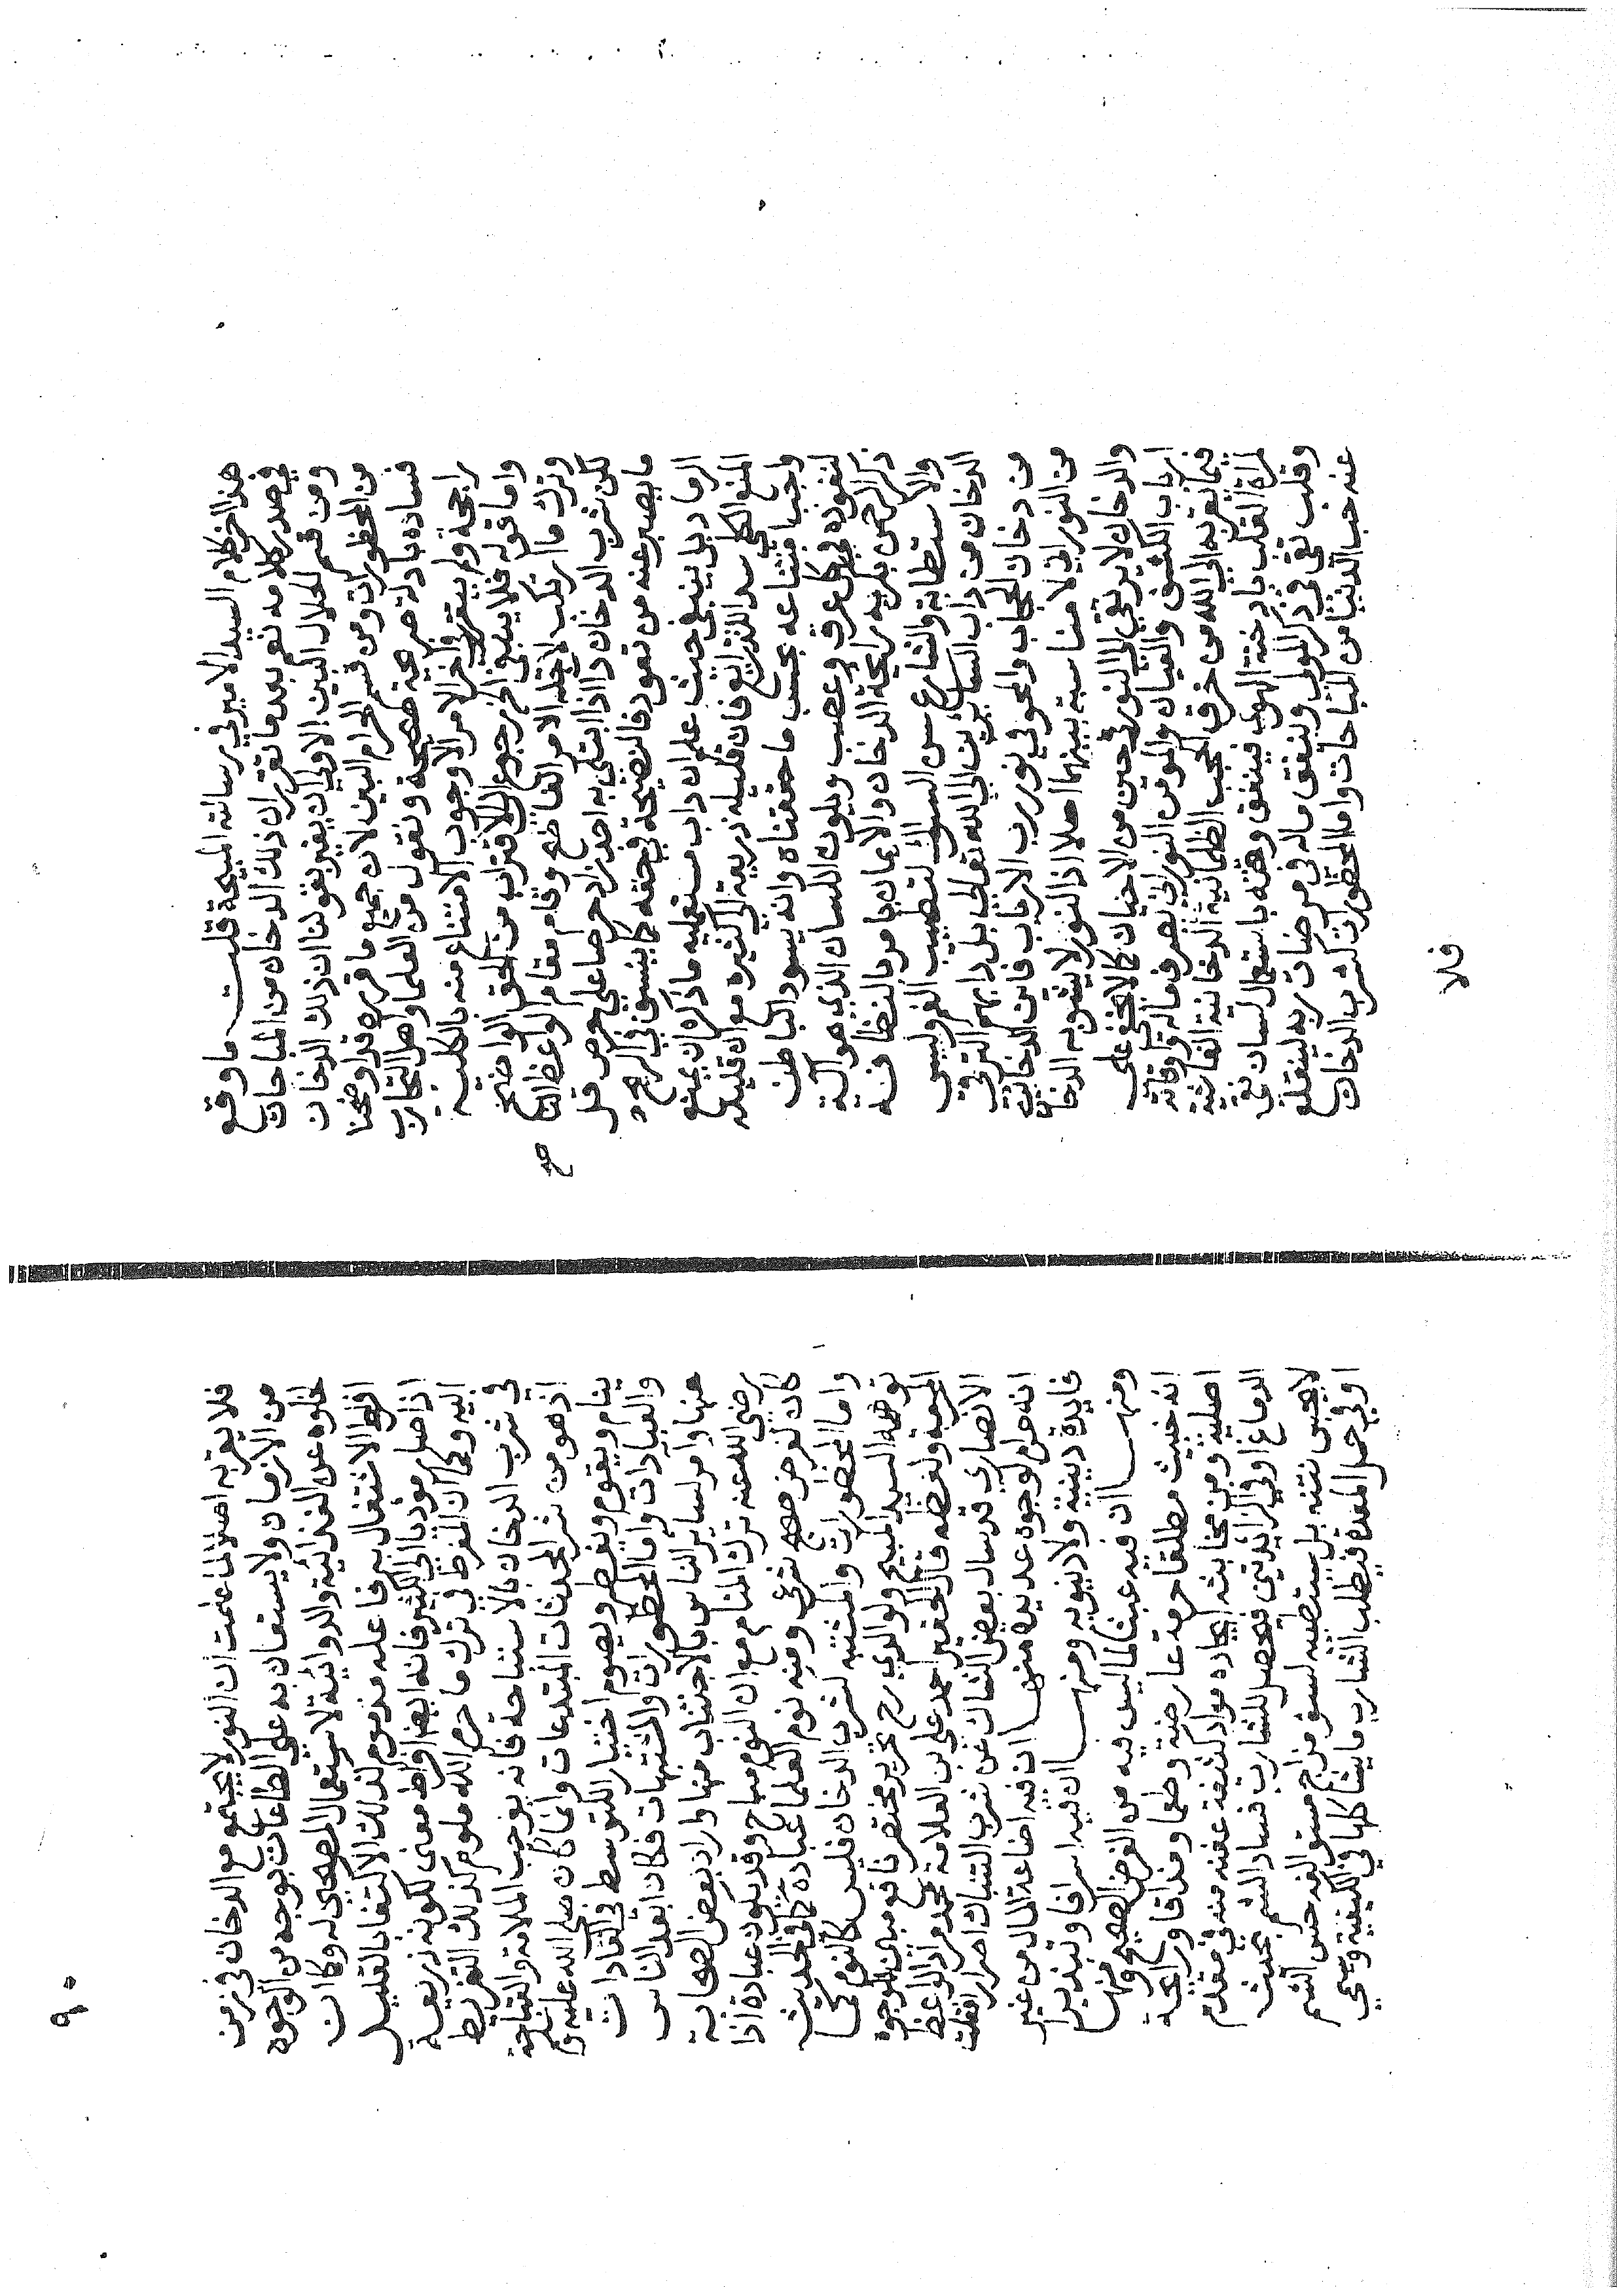 هذا اخر كلام السيد الامير في رسالته المبيحة قلت ما وقع
في صدر كلامه نعم بعد ما تقرر ان ذلك الدخان من المباحات
ومن قسم الحلال البين الاولى ان يغير بقولنا ان ذلك الدخان
من المحظورات ومن قسم الحرام البين لان جميع ما قرره قد اوضحنا
فساده بادلة صريحة صحيحة ونقول من العلما واهل التجارب
راجحة ولم يبق في اخر الامر الا وجوب الامتناع منه بالكلية
واما قوله فلا ينبغي الخ رجوع الى الاقتراب من الحق الواضح
وترك ما ارتكب لاجله الامر الفاضح وقام مقام الواعظ الناصح
لكن شرب الدخان داا اذا ابتلي به احد زاد حرصا على حرص قل
ما يصبر عنه من تعود فالنصيحة في حقه كما ينسق في الريح
الرماد بل ينبغي حيث علم ان داب مستعمليه ما ذكره ان يمنع
المنع الكلي سد اللذرايع فان قليله ذريعة الى كثيره مع ان قليله
واجب امتناعه بحسب ما حققناه وانه يسود الباطن
لنفوذه في كل عرق وعصب ويلوث اللسان الذي هو الة
ذكر الرحمن بكريه رايحة الدخان والايمان يامر بالنظافة
والاستطابة والشارع سن السواك لتطييب الفم وليس
الدخان من داب السايرين الى الله تعالى بل دابهم الترقي
من دخان الحجاب والمحو في نور رب الارباب فاين الدخان
من النوراني لا مناسبة بينهما اصلا اذ النور لا يشوبه الدخان
والدخان لا يرتقي الى النور في حين من الاحيان كما لا يخفى على
ارباب الكشف والعيان والمومن النوراني يصرف ماله واوقاته
فيما يقربه الى الله من خرق الحجب الظلمانية الدخانية الفانية
لمراة القلب بادخنة الهوى فينفق وقته باستعمال لسان نقي
وقلب تقي في ذكر المولى وينفق ماله في مرضات ربه لينقلع
عنه حب الدنيا من المباحات واما المحظورات كشرب الدخان
فلا
٩٠
فلا يقربه اصلا لما علمت ان النور لا يجتمع مع الدخان في زمن
من الازمان ولا يستعان به على الطاعات بوجه من الوجوه
لخلوه عن الغذائية والدوائية لاستعمال الصحيح له وكان
افراط الاشتغال به فاعله مذموم لذلك الاكتفا بالقليل
اذا صار مؤديا الى الكثير فانه ايضا افراط معنى لكونه ذريعة
اليه وكما ان المفرط في ترك ما حرم الله ملوم كذلك التفريط
في شرب الدخان بالاستباحة فانه يوجب الملامة والقباحة
اذ هو من شر المحدثات المبتدعات وانما كان صلى الله عليه وسلم
ينام ويقوم ويفطر ويصوم اختيار التوسط في العادات
والعبادات واما المحظورات والمشتبهات فكان ابعد الناس
عنها وامر لساير الناس بالاجتناب منها واراد بعض الصحابة
رضي الله عنه ترك المنام مع ان النوم مباح وقد يكون عبادة اذا
كان لغرض صحيح شرعي ومنه نوم العلما عبادة كما في الحديث
واما المحظورات والمشتبه لشرب الدخان فليس كالنوم كما
توهمه السيد المبيح ولوالدي رح تحرير مختصر فائق مبين لوجوه
الحرمة ولفظه قال الحقير احمد علي بن العلامة محمد مراد الواعظ
الانصاري قد سال بعض الشاك عن شرب التنباك اصرار فقلت
انه حرام لوجوه عديدة منها ان فيه اضاعة المال من غير
فايدة دينية ولا دنيوية ومنها ان فيه اسرافا وتبذيرا
ومنها ان فيه عبثا لما ليس فيه من الغرض الصحيح ومنها
انه خبيث مطلقا حرمة عارضة وطعما ومذاقا ورايحة
اصلية ومن خباثته ايجاده مواد كثيفة عفنة منه في مقدم
الدماغ او في الزايدتين فيحصل للشارب فساد الشم بحيث
لا يحس نتنه بل يستطيبه لسوء مزاج مستو الفه حس الشم
او في خمل المعدة فيطلب الشارب ما يشاكلها في الكيفية وسمي